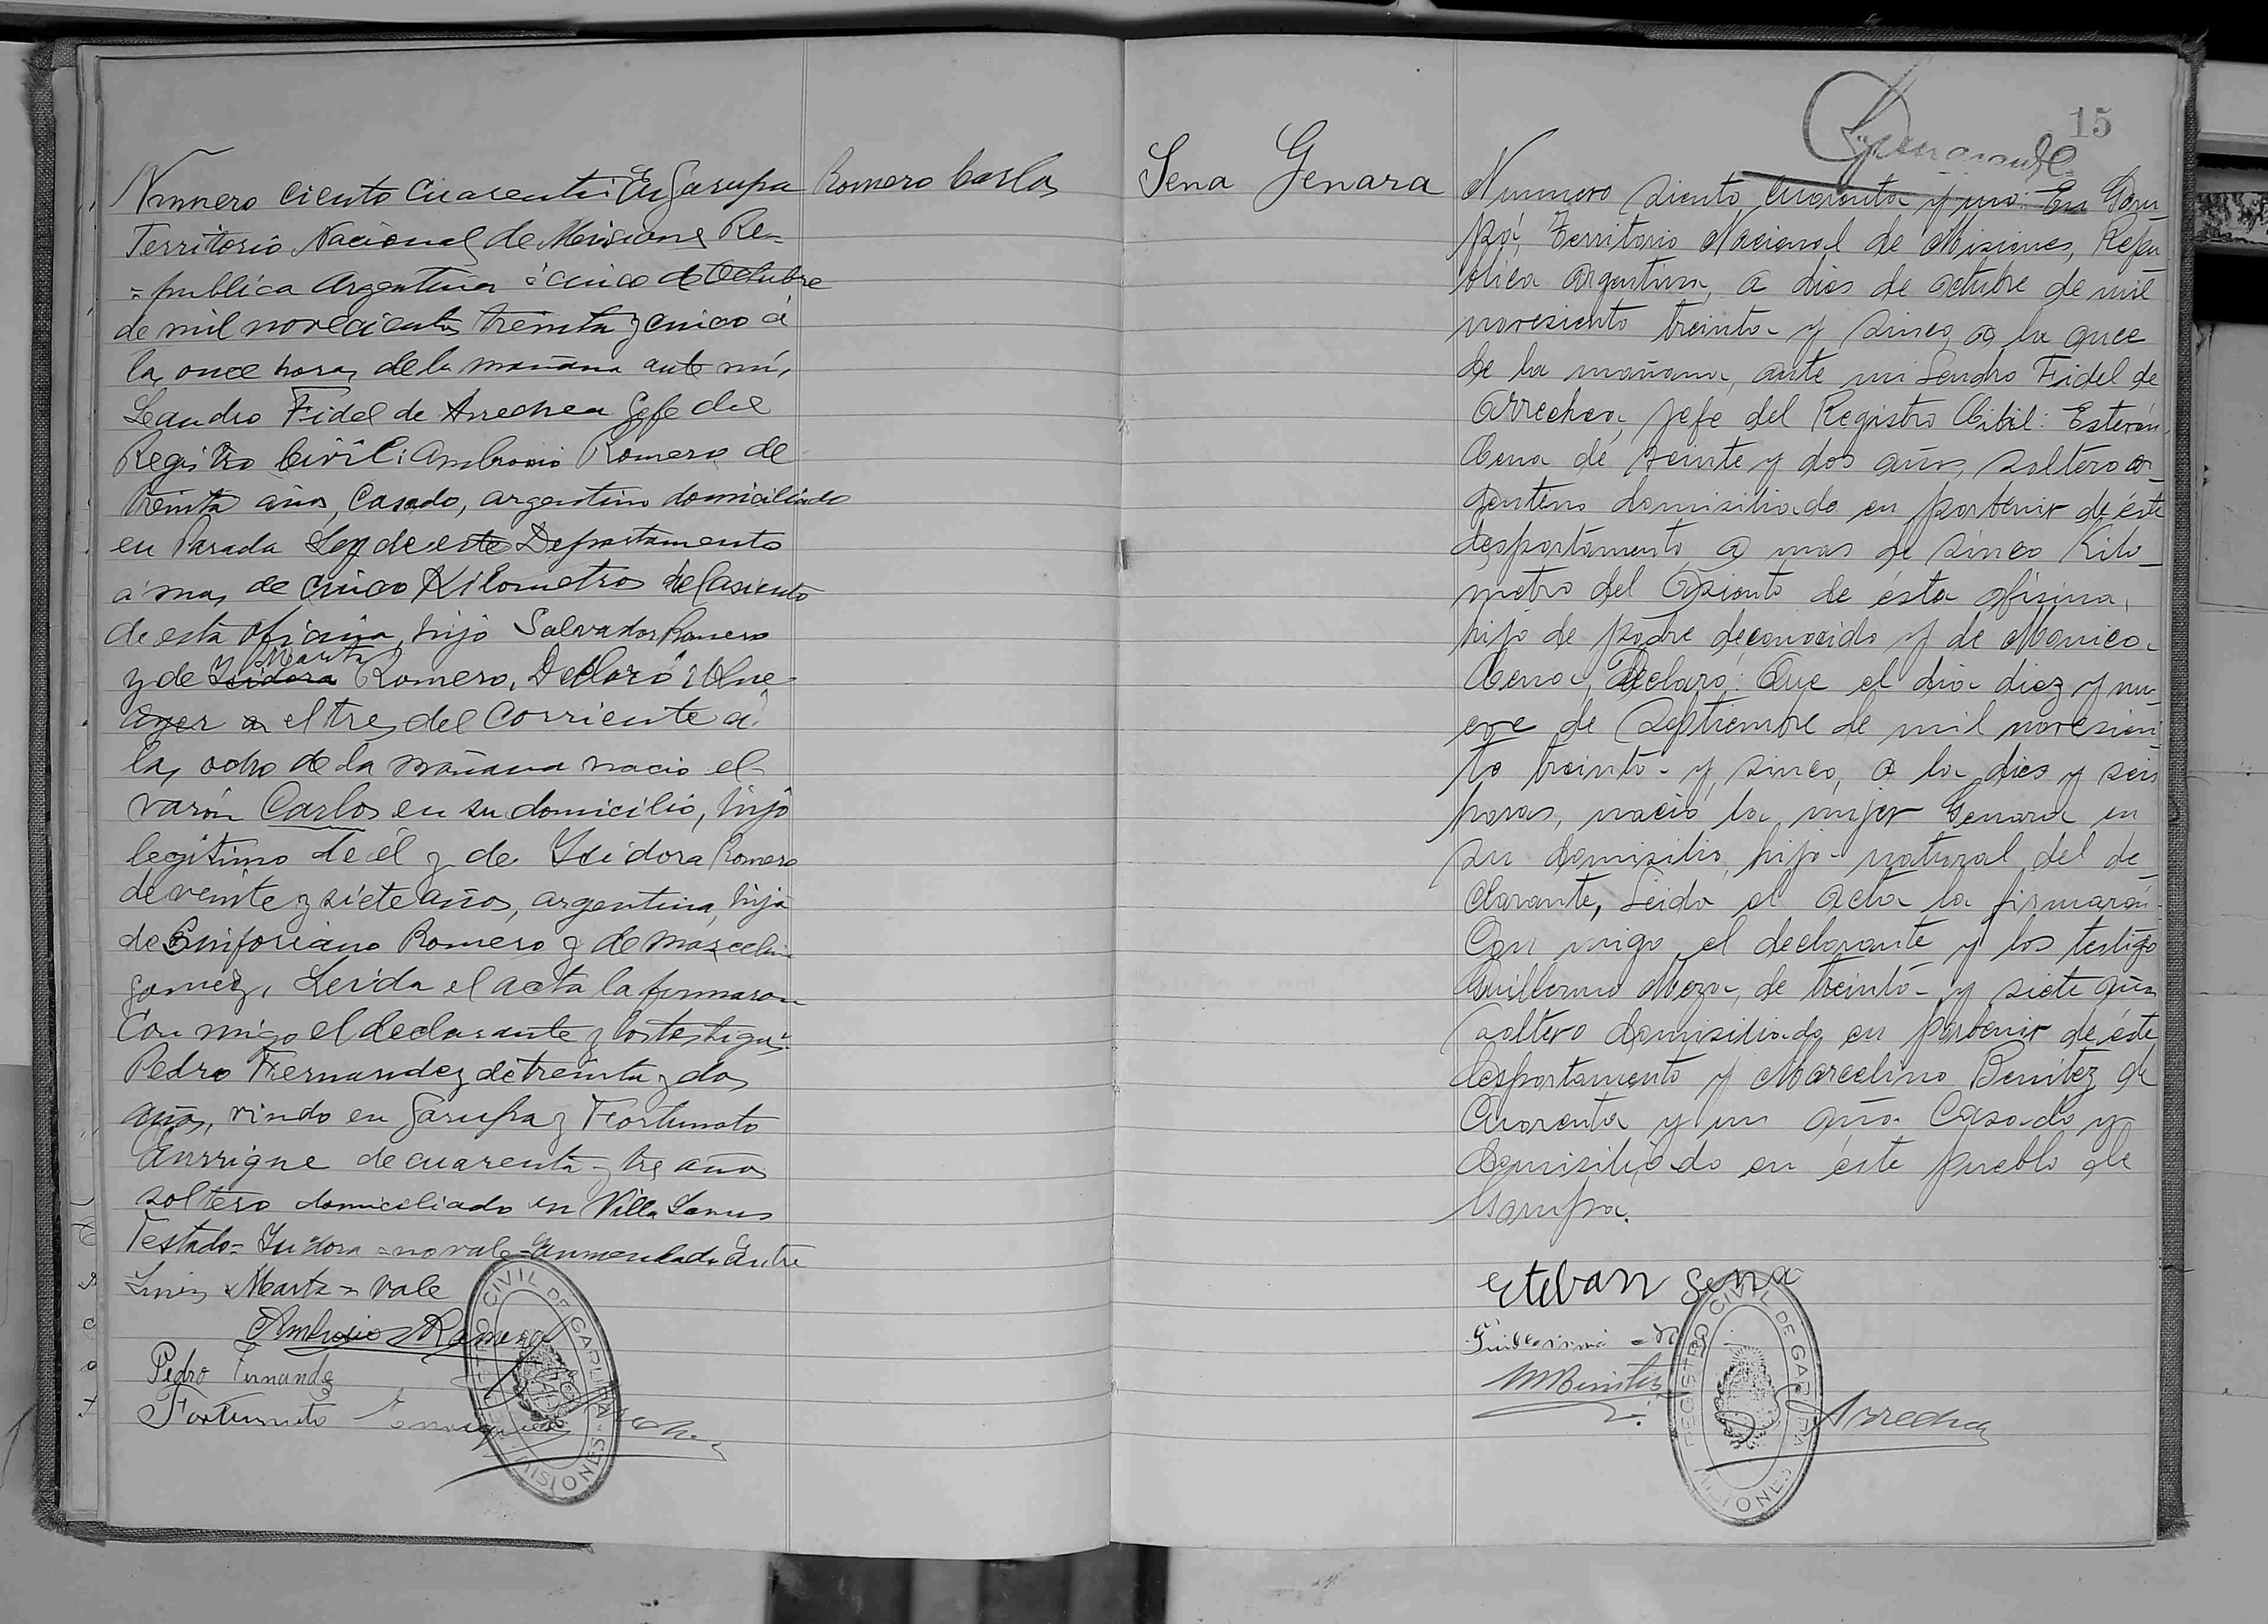 Romero Carlos
Numero ciento cuarenta: En Garupa
Territorio Nacional de Misiones Re=
=publica Argentina á cinco de Octubre
de mil novecientos treinta y cinco á
las once horas de la mañana ante mí,
Leandro Fidel de Arrechea Gefe del
Registro Civil: Ambrosio Romero de
treinta años, Casado, argentino domiciliado
en Parada Leg de este Departamento
á mas de cinco Kilometros del asiento
de esta oficina, hijo Salvador Romero
Marta
y de Isidora Romero, Declaró: Que
ayer a el tres del Corriente á
las ocho de la mañana nacio el
varón Carlos en su domicilio, hijo
legitimo de él y de Isidora Romero
de veinte y siete años, argentina, hija
de Sinforiano Romero y de Marcelina
Gomez, Leida el acta la firmaron
Con migo el declarante y los testigos:
Pedro Fernandez de treinta y dos
años, viudo en Garupa y Fortunato
Enrrique de cuarenta y tres años
soltero domiciliado en Villa Lanus
Testado= Isidora =no vale= Enmendado Entre
Lineas Marta = vale
Ambrosio Romero
Pedro Fernandez
Fortunato Enrriquez
REGISTRO CIVIL DE GARUPA MISIONES
15
Sena Genara
Nummero siento cuarenta y uno: En Garu_
pá, Territorio Nacional de Misiones, Repu
blica Argentina, a dies de octubre de mil
novesiento treinta y sinco, a la once
de la mañana, ante mi Leadro Fidel de
Arrechea, jefe del Registro Cibil: Esteván
Cena de veinte y dos años, soltero ar_
gentino domisiliado en porbenir de éste
despartamento a mas de sinco Kilo_
metro del Asiento de ésta ofisina,
hijo de padre deconocido y de Monica
Cena, Declaró: Que el dia diez y nu_
eve de Septiembre de mil novesien
to treinta y sinco, a la dies y seis
horas, nació la mujer Genara en
su domisilio, hija natural del de_
clarante, Leida el acta la firmarón
Con migo el declarante y los testigo
Guillermo Meza, de treinta y siete años
soltero domisiliado en porbenir de éste
despartamento y Marcelino Benitez de
Cuarenta y un año Casado y
domisiliado en éste pueblo de
Garupa.
Estevan Sena
MBenitez
Arrechea
REGISTRO CIVIL DE GARUPA MISIONES